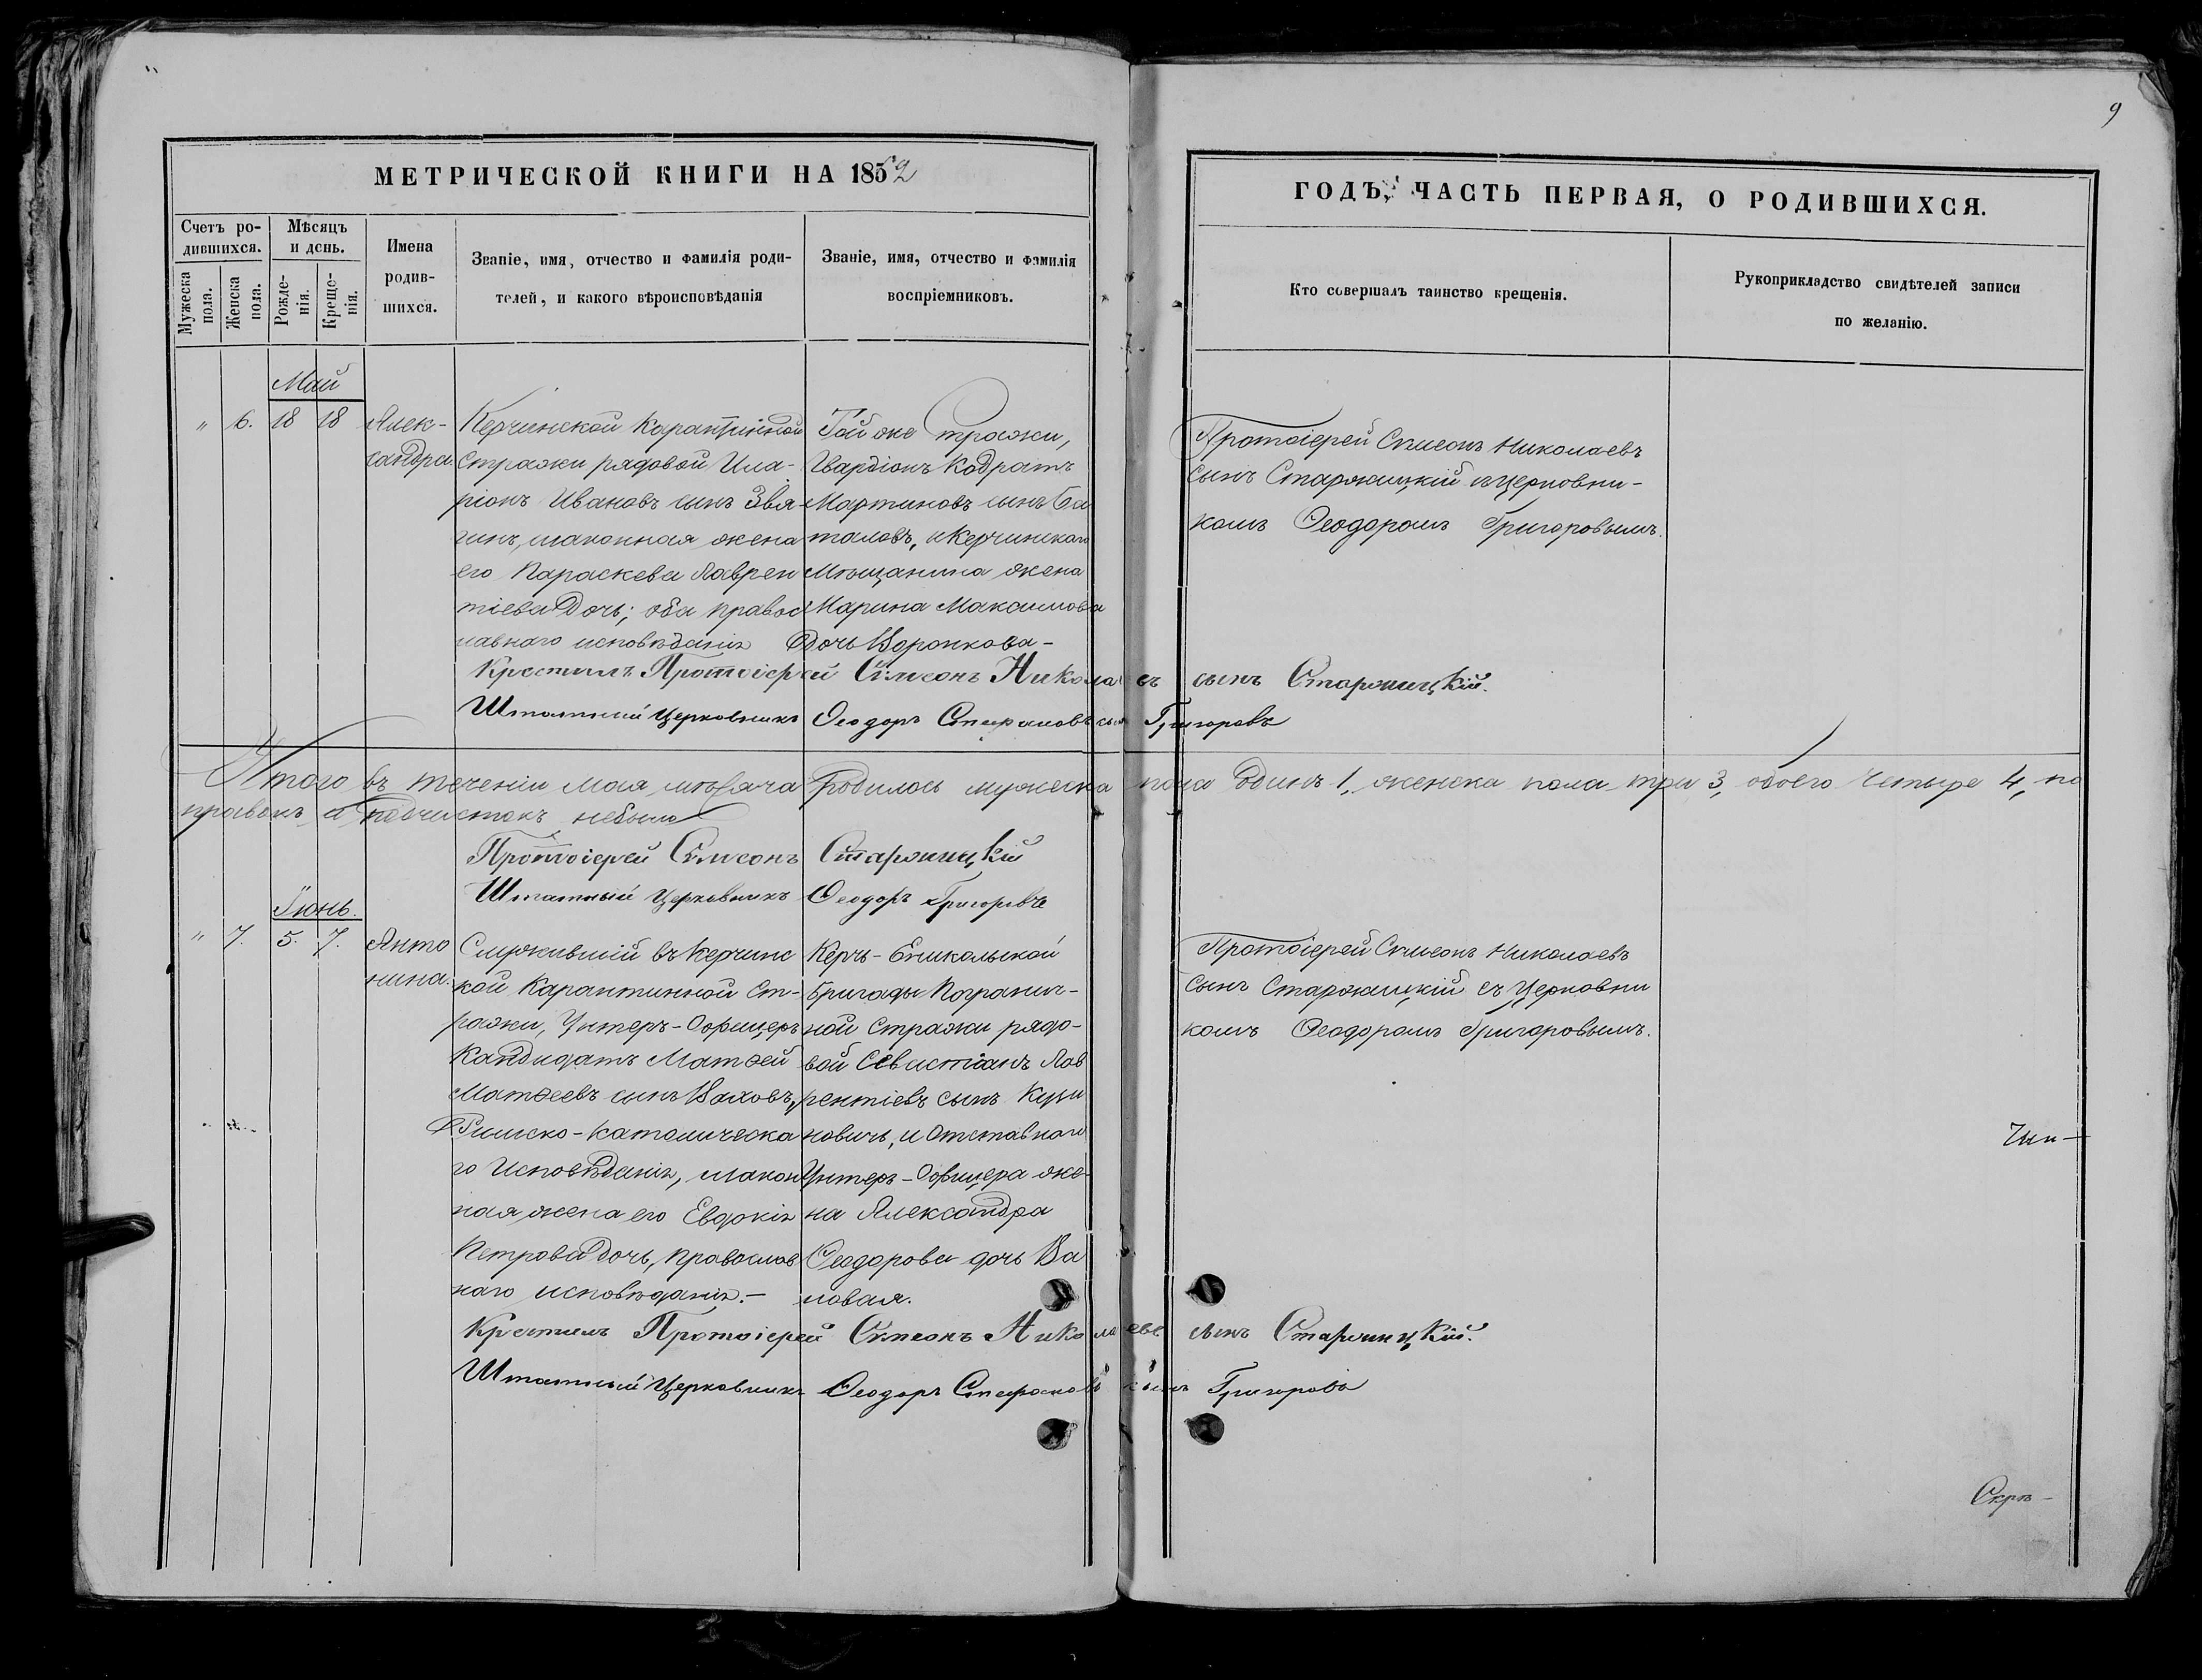 9
МЕТРИЧЕСКОЙ КНИГИ НА 1852
ГОДЪ, ЧАСТЬ ПЕРВАЯ, О РОДИВШИХСЯ.
Счетъ ро-
дившихся.
Мужеска
пола.
Женска
пола.
Мѣсяцъ
и день.
Рожде-
нія.
Креще-
нія.
Имена
родив-
шихся.
Званіе, имя, отчество и фамилія роди-
телей, и какого вѣроисповѣданія
Званіе, имя, отчество и фамилія
воспріемниковъ.
Кто совершалъ таинство крещенія.
Рукоприкладство свидѣтелей записи
по желанію.
Май
" 6. 18 18
Алек-
сандра.
Керчинской Карантинной
Стражи рядовой Ила-
ріонъ Ивановъ сынъ Звя-
гинъ, изаконная жена
его Параскева Лаврен
тіева дочь; оба правос
лавнаго исповѣданія
Той же стражи,
Гвардіонъ Кодратъ
Мартиновъ сынъ Ба
таловъ, и Керчинскаго
Мѣщанина жена
Марина Максимова
дочь Воронкова-
Протоіерей Симеонъ Николаевъ
сынъ Старжицкій съ церковни-
комъ Ѳеодоромъ Григоровымъ.
Крестилъ Протоіерей Симеонъ Николаевъ сынъ Старжицкій.
Штатный Церковникъ Ѳеодоръ Стефановъ сынъ Григоровъ
Итого въ теченіи Мая мѣсяца родилось мужеска пола одинъ 1, женска пола три 3, обоего четыре 4, по
правокъ и подчистокъ небыло
Протоіерей Симеонъ Старжицкій
Штатный Церковникъ Ѳеодоръ Григоровъ
Іюнь.
" 7. 5. 7.
Анто
нина.
Служившій въ Керчинс
кой Карантинной Ст-
ражи, Унтеръ-Офицеръ
Кандидатъ Матѳей
Матѳеевъ сынъ Ваховъ,
Римско-католическа
го Исповѣданія, изакон
ная жена его Евдокія
Петрова дочь, православ
наго исповѣданія.-
Керчь-Еникольской
Бригады Погранич-
ной Стражи рядо-
вой Севастіанъ Лав
рентіевъ сынъ Куш
новичъ, и Отставнаго
Унтеръ-Офицера же-
на Александра
Ѳеодорова дочь Ва
ловая.
Протоіерей Симеонъ Николаевъ
сынъ Старжицкій съ Церковни
комъ Ѳеодоромъ Григоровымъ.
Крестилъ Протоіерей Симеонъ Николаевъ сынъ Старжицкій.
Штатный Церковникъ Ѳеодоръ Стефановъ сынъ Григоровъ
Скрѣ-